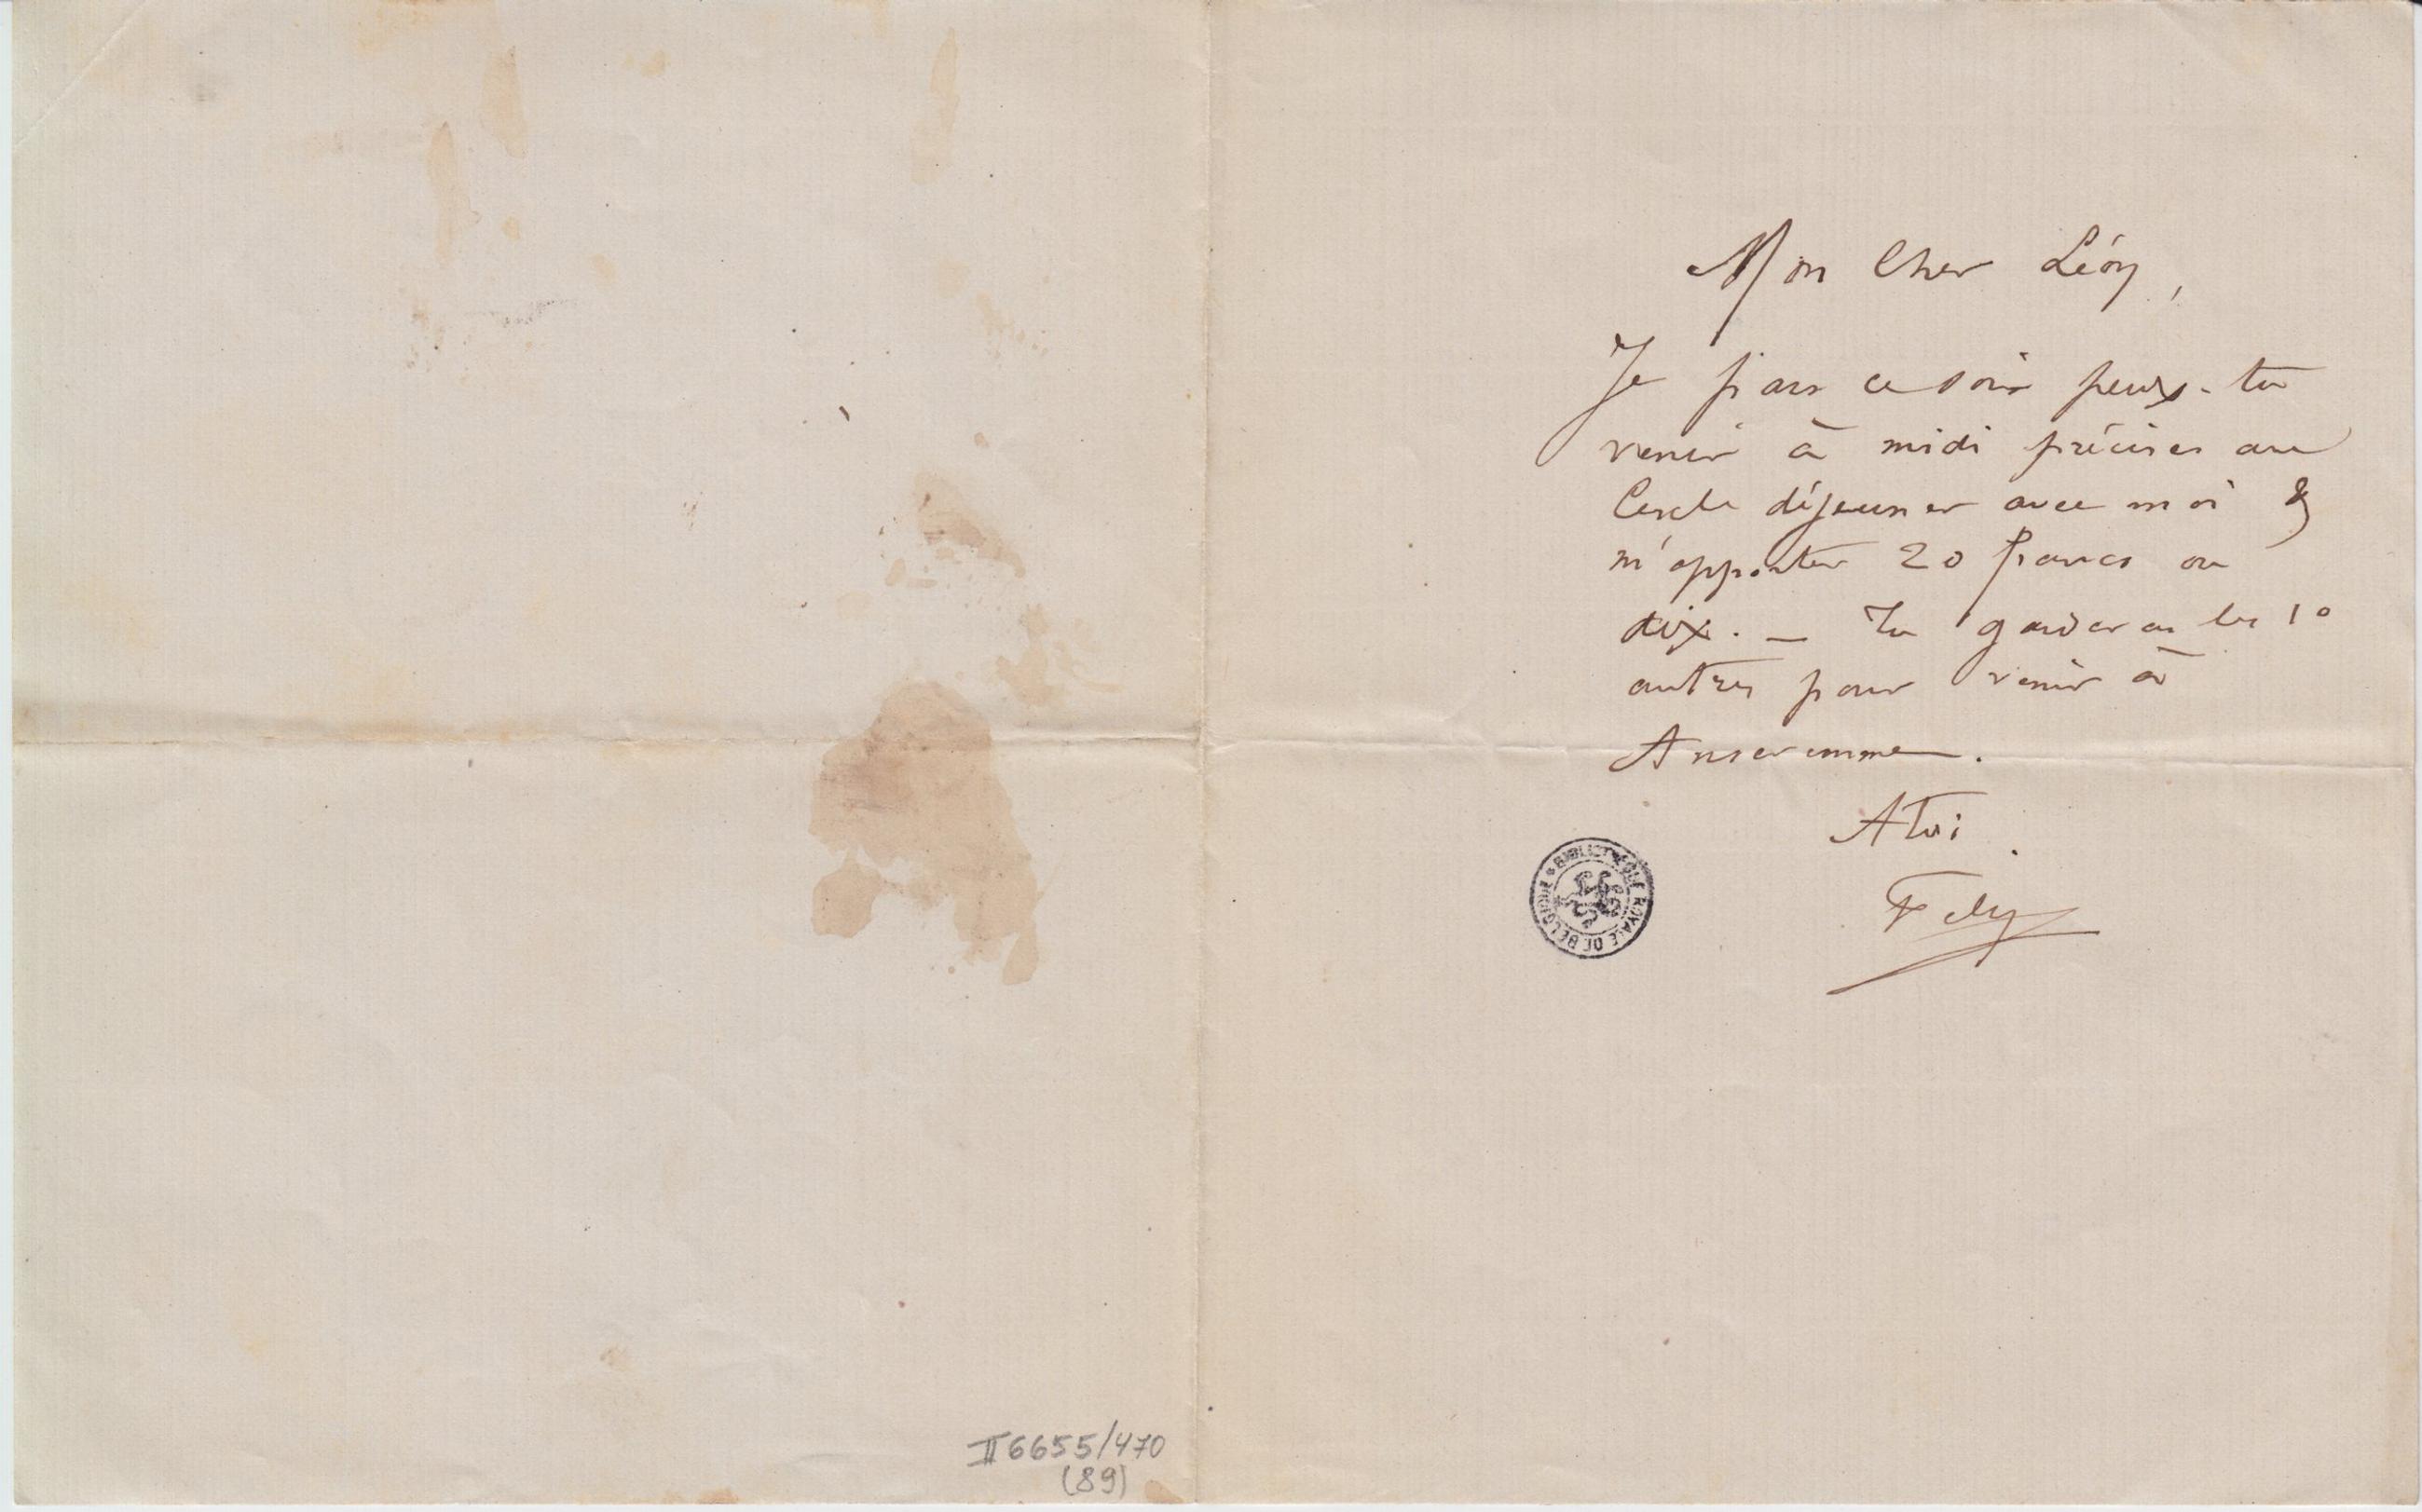 Mon Cher Léon,
Je pars ce soir peux-tu
venir à midi précises au
Cercle déjeuner avec moi &
m'apporter 20 francs ou
dix. — Tu garderas les 10
autres pour venir à
Anseremme.
A toi
Fély
BIBLIOTHÈQUE ROYALE DE BELGIQUE
II 6655/470
(89)